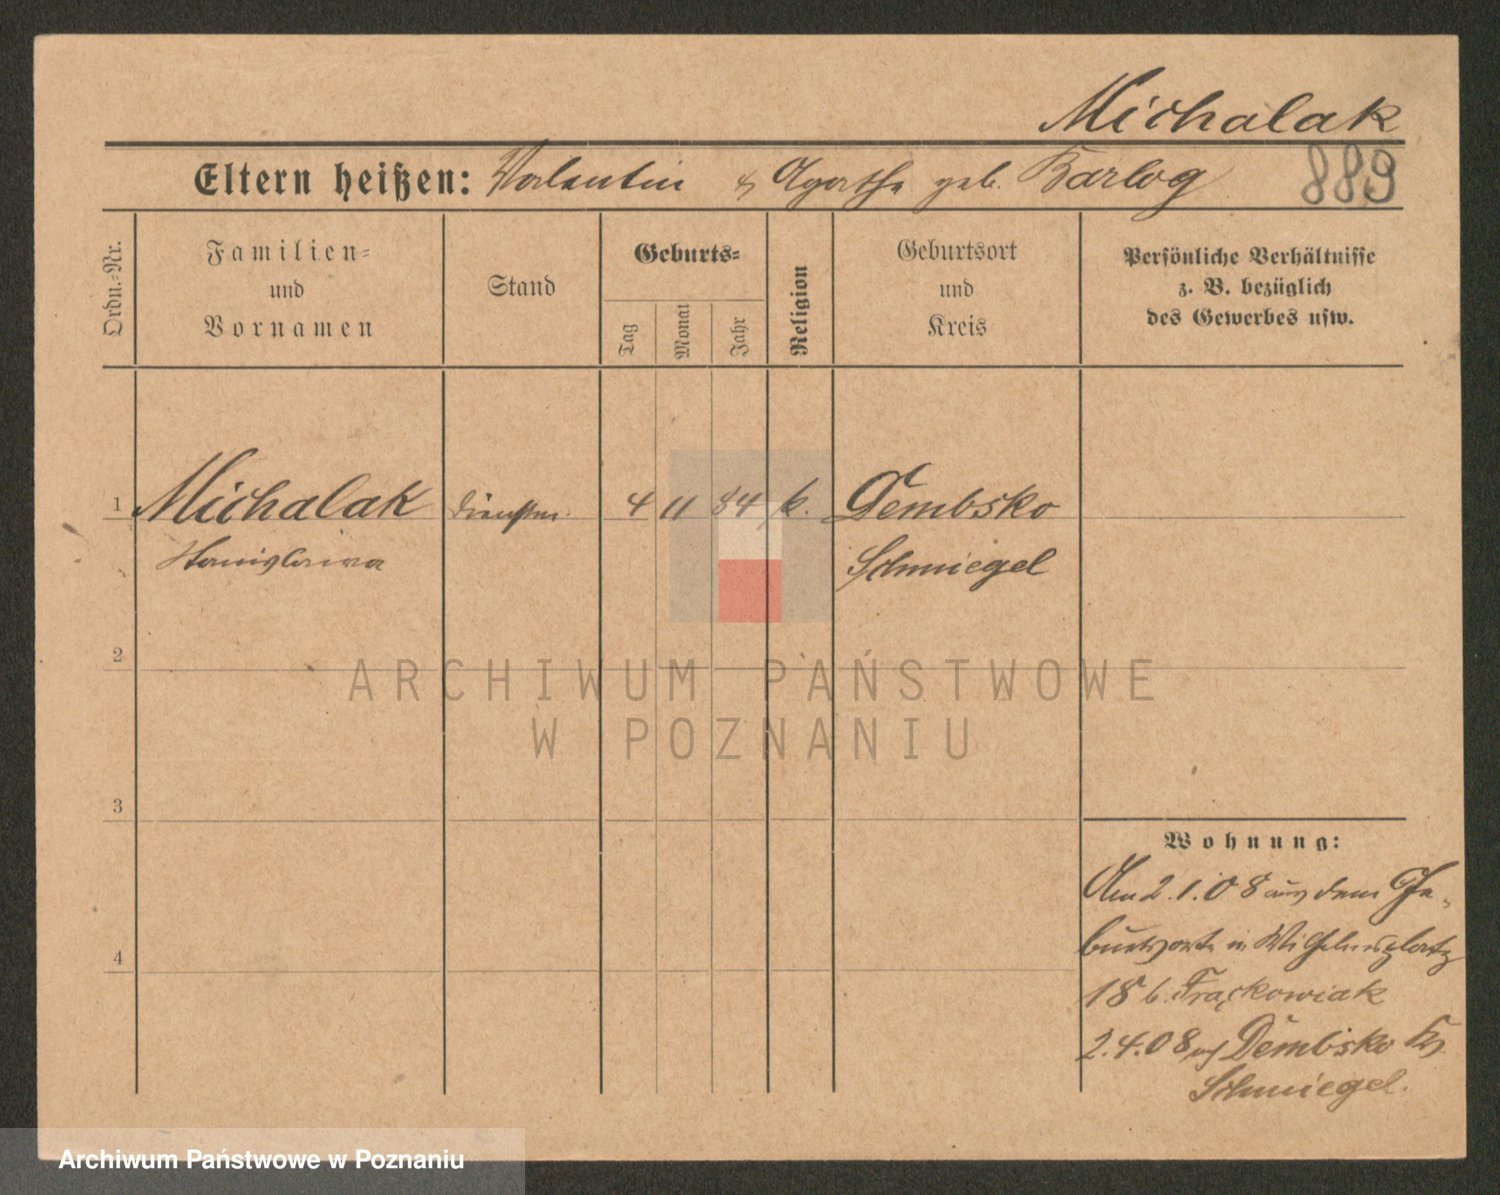 Michalak
Eltern heißen: Valentin & Agathe geb. Barlog
889
Ordn.-Nr.
Familien-
und
Vornamen
Stand
Geburts-
Tag
Monat
Jahr
Religion
Geburtsort
und
Kreis
Persönliche Verhältnisse
z. B. bezüglich
des Gewerbes usw.
1 Michalak Dienstm. 4 11 84 k. Dembsko
Stanislawa Schmiegel
2
ARCHIWUM PAŃSTWOWE
W POZNANIU
3
Wohnung:
Am 2.1.08 aus dem Ge-
burtsorte in Wilhelmsplatz
18 b. Frąckowiak
4
2.4.08 n/ Dembsko Krs
Schmiegel.
Archiwum Państwowe w Poznaniu